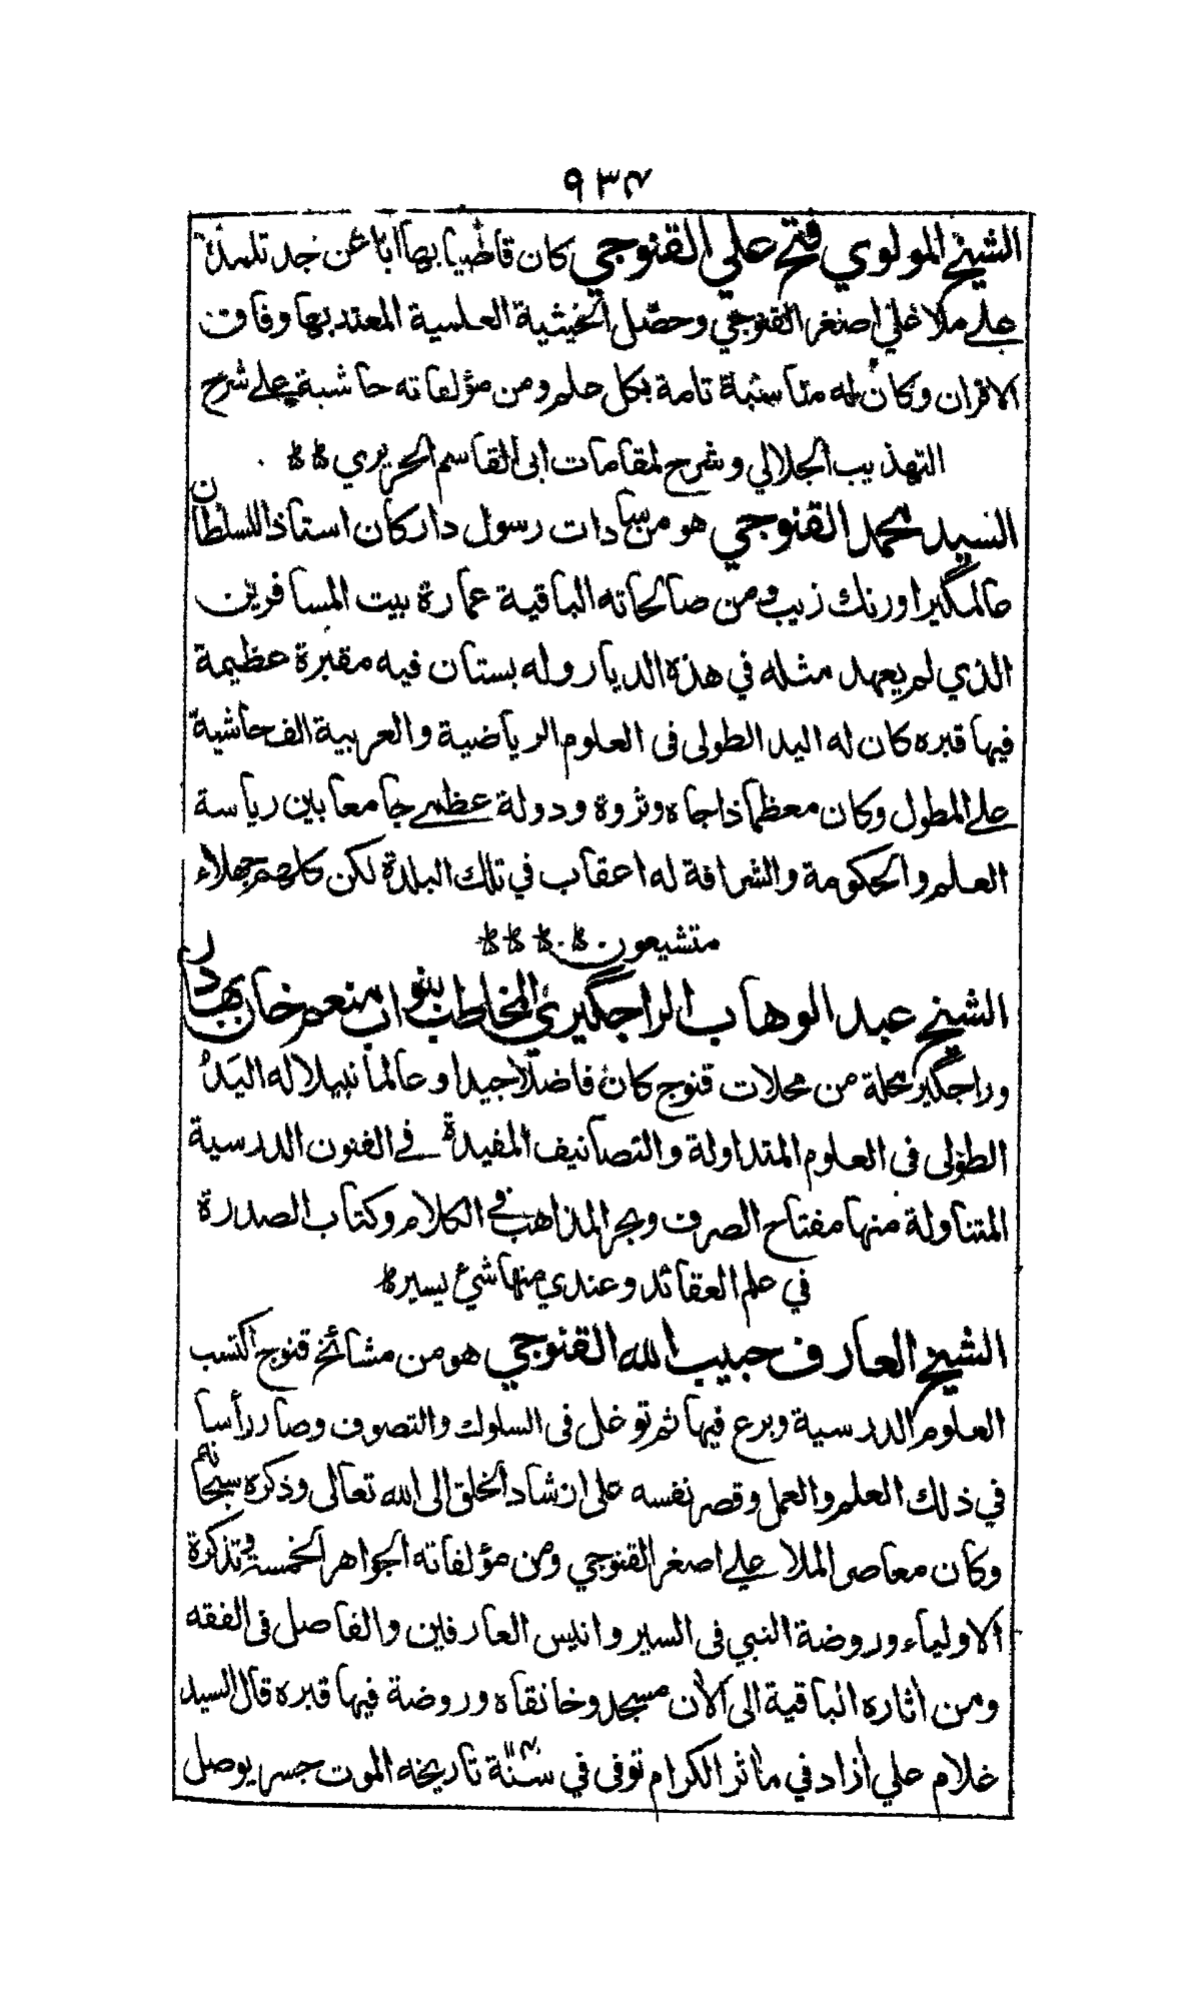 ٩٣٤
الشيخ المولوي فتح علي القنوجي كان قاضيا بها ابا عن جد تلمذ
على ملا علي اصغر القنوجي وحصل الحيثية العلمية المعتد بها وفات
الاقران وكان له مناسبة تامة بكل علم ومن مؤلفاته حاشية على شرح
التهذيب الجلالي وشرح لمقامات ابى القاسم الحريري
السيد محمد القنوجي هو من سادات رسول دار كان استاذا للسلطان
عالمگير اورنك زيب ومن صالحاته الباقية عمارة بيت المسافرين
الذي لم يعهد مثله في هذه الديار وله بستان فيه مقبرة عظيمة
فيها قبره كان له اليد الطولى فى العلوم الرياضية والعربية الف حاشية
على المطول وكان معظما ذا جاه وثروة ودولة عظمى جامعا بين رياسة
العلم والحكومة والشرافة له اعقاب في تلك البلدة لكن كلهم جهلاء
متشيعون
الشيخ عبد الوهاب الراجگيري المخاطب بنواب منعم خان بهادر
وراجگير محلة من محلات قنوج كان فاضلا جيدا وعالما نبيلا له اليَدُ
الطولى فى العلوم المتداولة والتصانيف المفيدة في الفنون الدرسية
المتناولة منها مفتاح الصرف وبحر المذاهب في الكلام وكتاب الصدرة
في علم العقائد وعندي منها شيء يسير
الشيخ العارف حبيب الله القنوجي هو من مشائخ قنوج اكتسب
العلوم الدرسية وبرع فيها ثم توغل فى السلوك والتصوف وصار رأسا
في ذلك العلم والعمل وقصر نفسه على ارشاد الخلق الى الله تعالى وذكره سبحانه
وكان معاصر الملا علي اصغر القنوجي ومن مؤلفاته الجواهر الخمسة وتذكرة
الاولياء وروضة النبي فى السير وانيس العارفين والفاصل فى الفقه
ومن اثاره الباقية الى الأن مسجد وخانقاه وروضة فيها قبره قال السيد
غلام علي أزاد في مأثر الكرام توفى في سنة تاريخه الموت جسر يوصل